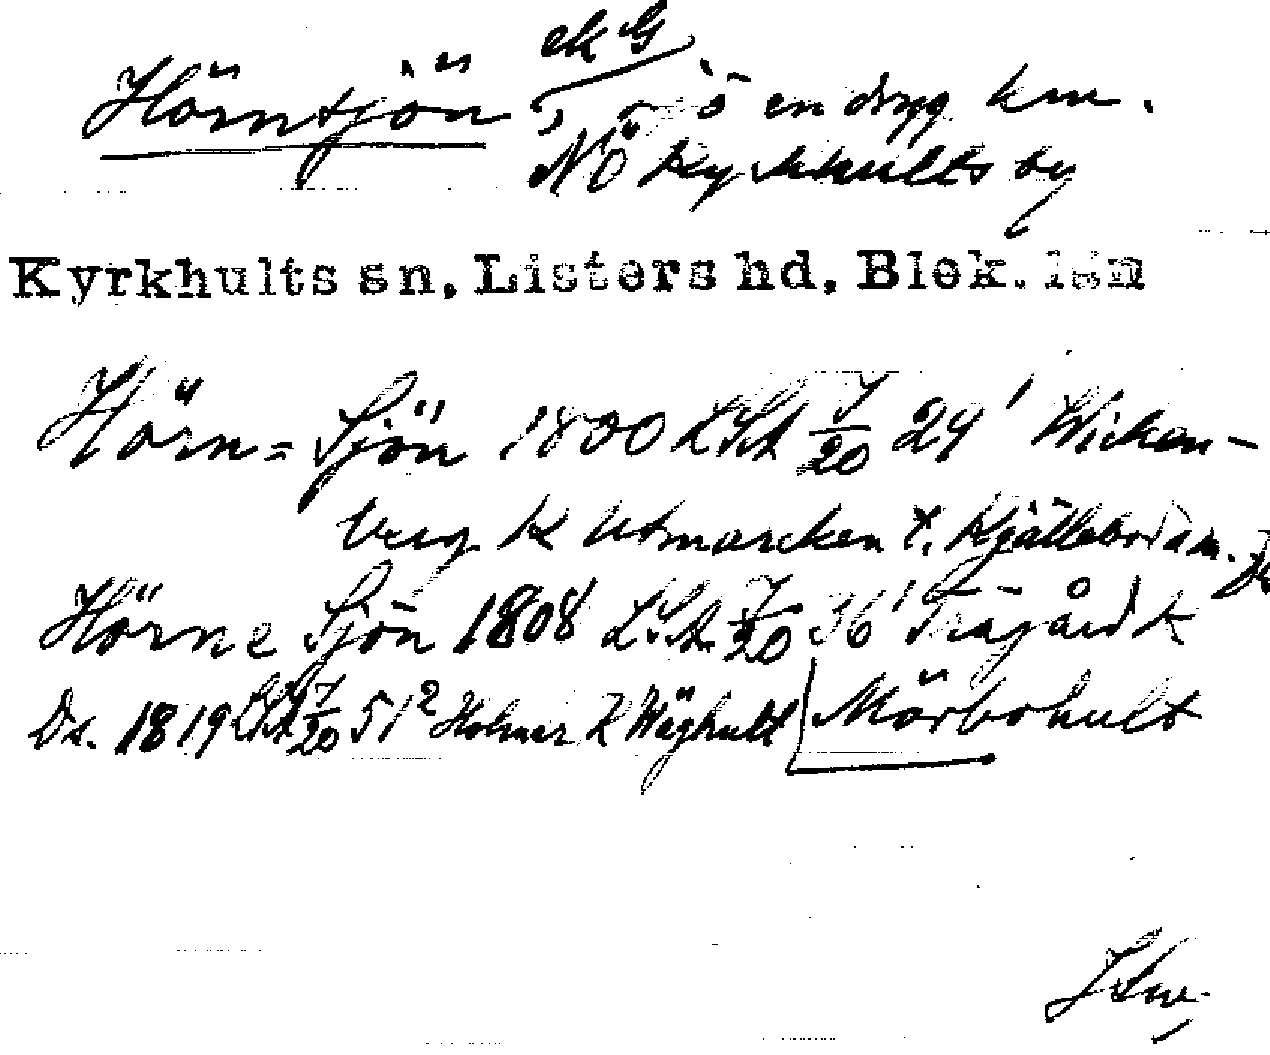 Hörntjön ek G
sjö en dryg km.
NÖ Kyrkhults by
Kyrkhults sn, Listers hd, Blek. län
Hörn= Sjön 1800 LSA 7/20 24' Wicken-
berg K Utmarcken t. Kjällebodam. Ds
Hörne Sjön 1808 LSA 7/20 36' Trägård K
Ds. 1819 LSA 7/20 51² Holmer K Wäghult Mörbohult